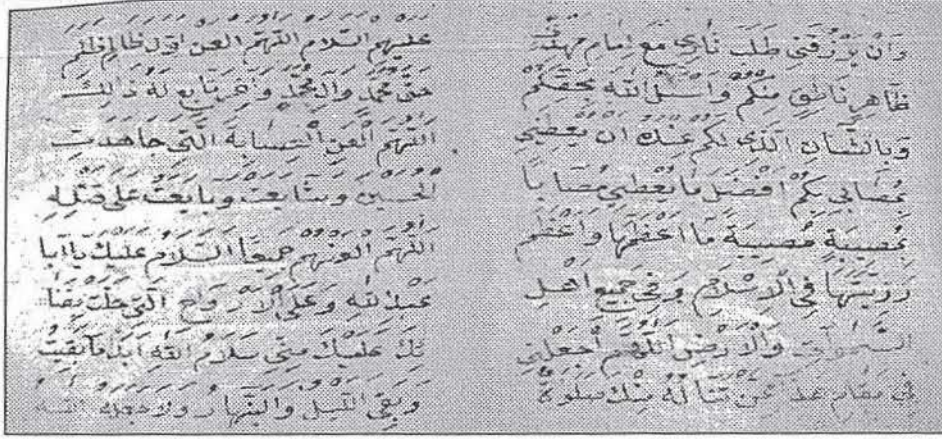 وَاَنْ يَرْزُقَنِى طَلَبَ ثَارِى مَعَ اِمَامٍ مَهْدِىٍّ
ظَاهِرٍ نَاطِقٍ مِنْكُمْ وَاَسْئَلُ اللهَ بِحَقِّكُمْ
وَبِالشَّانِ الَّذِى لَكُمْ عِنْدَهُ اَنْ يُعْطِيَنِى
بِمُصَابِى بِكُمْ اَفْضَلَ مَا يُعْطِى مُصَابًا
بِمُصِيبَةٍ مُصِيبَةً مَا اَعْظَمَهَا وَاَعْظَمَ
رَزِيَّتَهَا فِى الْاِسْلَامِ وَفِى جَمِيعِ اَهْلِ
السَّمٰوَاتِ وَالْاَرْضِ اَللّٰهُمَّ اجْعَلْنِى
فِى مَقَامِى هٰذَا مِمَّنْ تَنَالُهُ مِنْكَ صَلَوَةٌ
عَلَيْهِمُ السَّلَامُ اَللّٰهُمَّ الْعَنْ اَوَّلَ ظَالِمٍ ظَلَمَ
حَقَّ مُحَمَّدٍ وَآلِ مُحَمَّدٍ وَآخِرَ تَابِعٍ لَهُ ذَالِكَ
اَللّٰهُمَّ الْعَنِ الْعِصَابَةَ الَّتِى جَاهَدَتِ
الْحُسَيْنَ وَشَايَعَتْ وَبَايَعَتْ عَلَى قَتْلِهِ
اَللّٰهُمَّ الْعَنْهُمْ جَمِيعًا اَلسَّلَامُ عَلَيْكَ يَا اَبَا
عَبْدِ اللهِ وَعَلَى الْاَرْوَاحِ الَّتِى حَلَّتْ بِفَنَا
ئِكَ عَلَيْكَ مِنِّى سَلَامُ اللهِ اَبَدًا مَا بَقِيتُ
وَبَقِىَ اللَّيْلُ وَالنَّهَارُ وَلَا جَعَلَهُ اللهُ